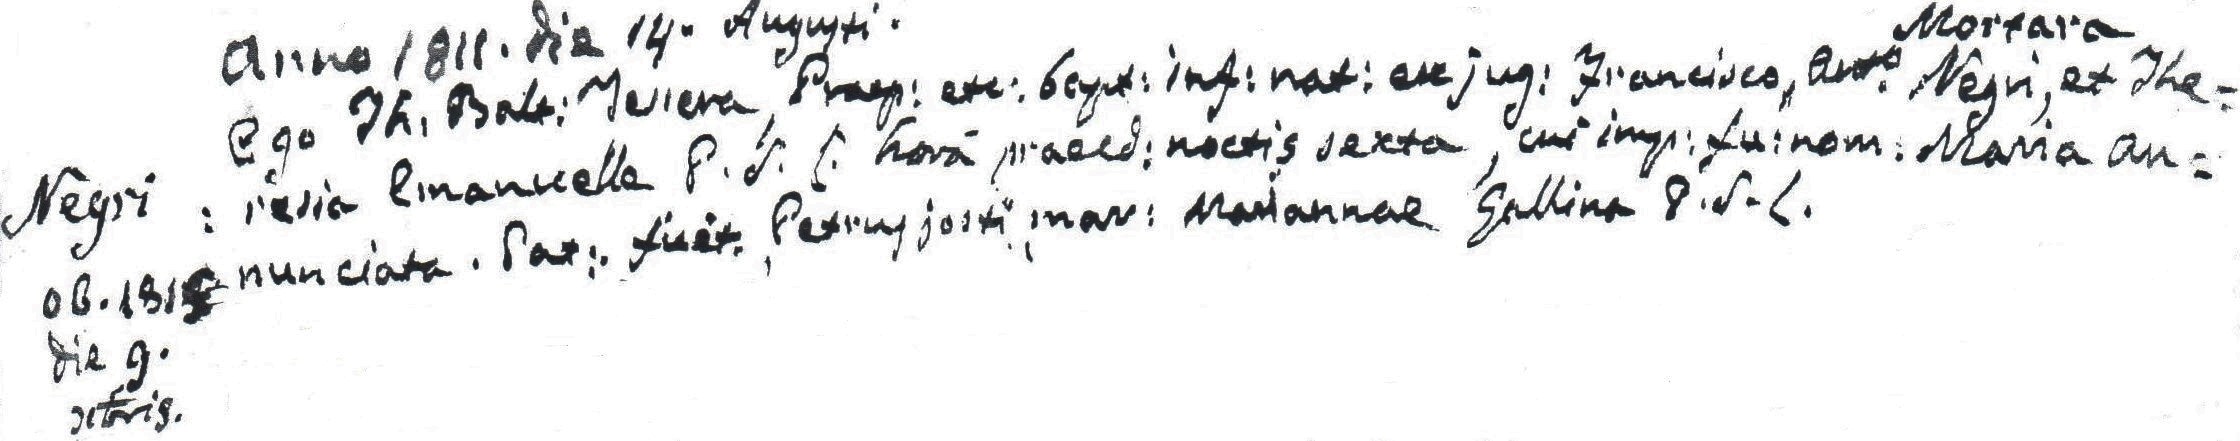 Mortara
Anno 1811. die 14. Augusti.
Ego Jh. Balt: Praep: etc: bapt: inf: nat: ex jug: Francisco, Anto Negri, et The-
Negri : resia Emanuelle P. S. L. horâ praeced: noctis sexta, cui imp: fu: nom: Maria An-
nunciata. Pat: fuit. Petrus josti, mar: Mariannae Gallina P. S. L.
ob. 181
die 9.